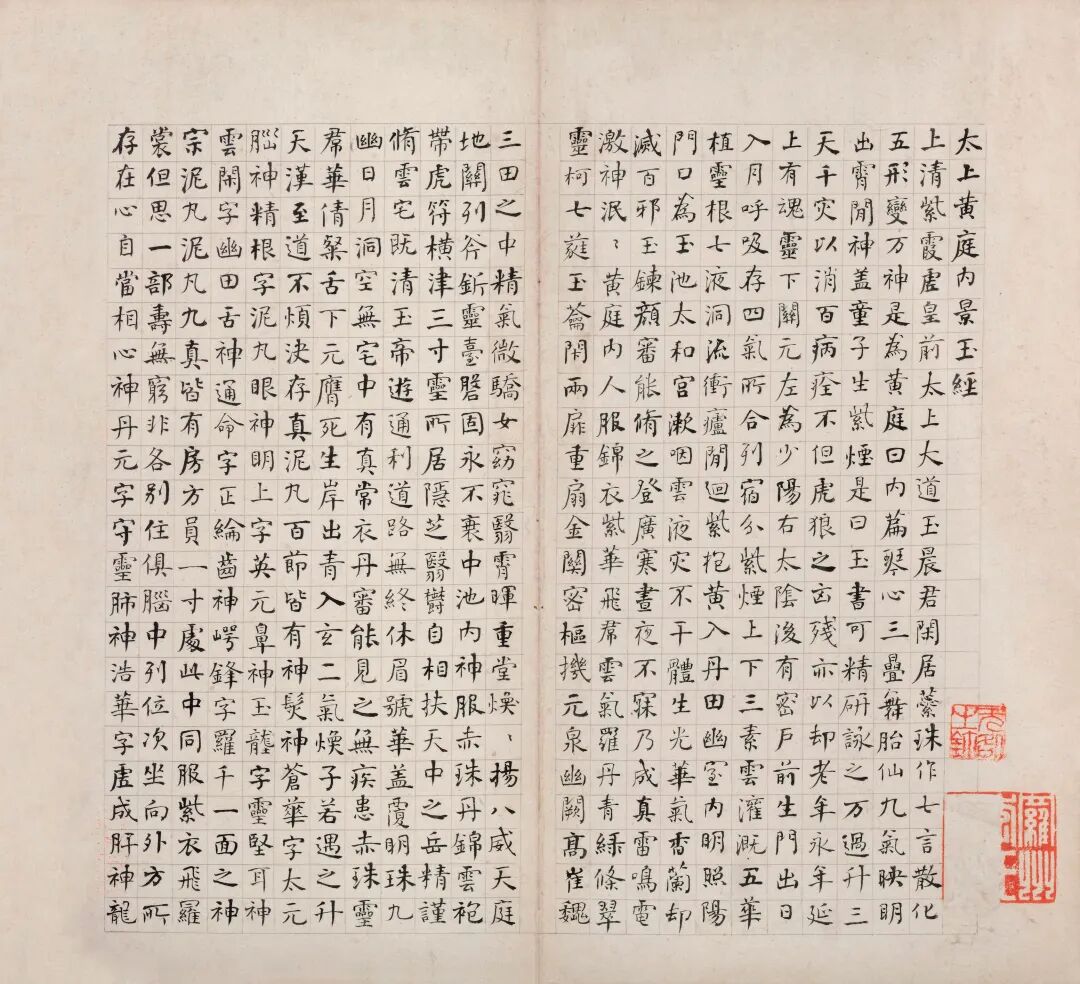 太上黃庭內景玉經
上清紫霞虛皇前太上大道玉晨君閑居蘂珠作七言散化
五形變万神是為黃庭曰內篇琴心三疊舞胎仙九氣映明
出霄閒神盖童子生紫煙是曰玉書可精研詠之万過升三
天千灾以消百病痊不但虎狼之凶殘亦以却老年永年延
上有魂靈下關元左為少陽右太陰後有密戶前生門出日
入月呼吸存四氣所合列宿分紫煙上下三素雲灌溉五華
植靈根七液洞流衝廬閒迴紫抱黃入丹田幽室內明照陽
門口為玉池太和宮漱咽雲液灾不干體生光華氣香蘭却
滅百邪玉鍊顏審能脩之登廣寒晝夜不寐乃成真雷鳴電
激神泯〻黃庭內人服錦衣紫華飛帬雲氣羅丹青綠條翠
靈柯七蕤玉籥閉兩扉重扇金關密樞機元泉幽闕高崔巍
三田之中精氣微驕女窈窕翳霄暉重堂煥〻揚八威天庭
地關列斧釿靈臺磐固永不衰中池內神服赤珠丹錦雲袍
帶虎符橫津三寸靈所居隱芝翳欝自相扶天中之岳精謹
脩雲宅既清玉帝遊通利道路無終休眉號華盖覆明珠九
幽日月洞空無宅中有真常衣丹審能見之無疾患赤珠靈
帬華倩粲舌下元膺死生岸出青入玄二氣煥子若遇之升
天漢至道不煩決存真泥丸百節皆有神髮神蒼華字太元
腦神精根字泥丸眼神明上字英元鼻神玉壟字靈堅耳神
雲閑字幽田舌神通命字正綸齒神崿鋒字羅千一面之神
宗泥丸泥丸九真皆有房方員一寸處此中同服紫衣飛羅
裳但思一部壽無窮非各別住俱腦中列位次坐向外方所
存在心自當相心神丹元字守靈肺神浩華字虛成肝神龍